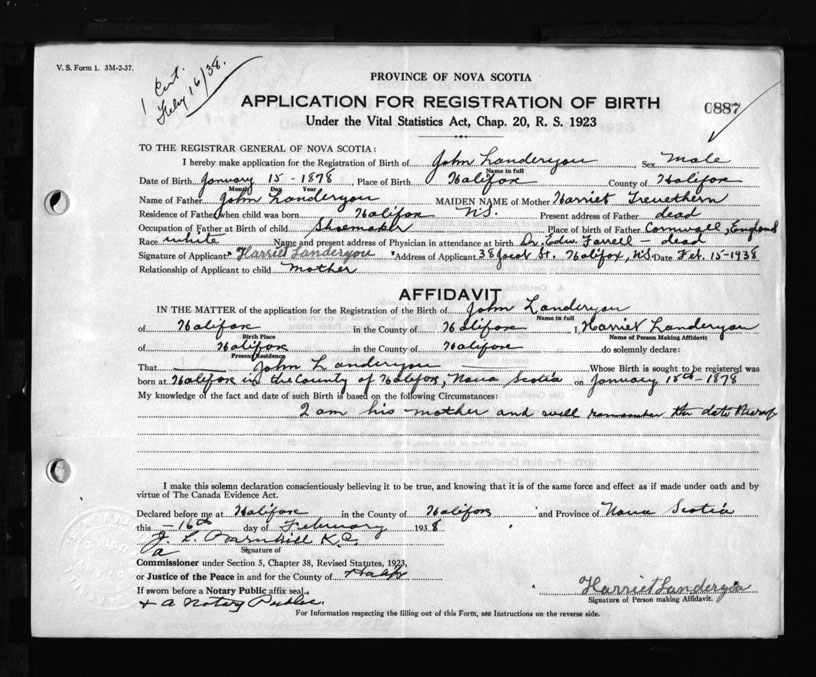 V. S. Form 1. 33M-2-37.
1 Cert.
Feby 16/38.
PROVINCE OF NOVA SCOTIA
APPLICATION FOR REGISTRATION OF BIRTH
0887
Under the Vital Statistics Act, Chap. 20, R. S. 1923
TO THE REGISTRAR GENERAL OF NOVA SCOTIA:
I hereby make application for the Registration of Birth of John Landeryou Sex Male
Name in full
Date of Birth January 15 - 1878, Place of Birth Halifax County of Halifax
Month Day Year
Name of Father John Landeryou MAIDEN NAME of Mother Harriet Trevethern
Residence of Father when child was born Halifax N.S. Present address of Father dead
Occupation of Father at Birth of child Shoemaker Place of birth of Father Cornwall, England
Race white Name and present address of Physician in attendance at birth Dr. Edw. Farrell - dead
Signature of Applicant Harriet Landeryou Address of Applicant 38 Jacob St. Halifax, N.S. Date Feb. 15-1938
Relationship of Applicant to child mother
AFFIDAVIT
IN THE MATTER of the application for the Registration of the Birth of John Landeryou
Name in full
of Halifax in the County of Halifax I, Harriet Landeryou
Birth Place Name of Person Making Affidavit
of Halifax in the County of Halifax do solemnly declare:
Present Residence
That John Landeryou Whose Birth is sought to be registered was
born at Halifax in the County of Halifax, Nova Scotia on January 15th-1878
My knowledge of the fact and date of such Birth is based on the following Circumstances:
I am his mother and well remember the date thereof
I make this solemn declaration conscientiously believing it to be true, and knowing that it is of the same force and effect as if made under oath and by
virtue of The Canada Evidence Act.
Declared before me at Halifax in the County of Halifax and Province of Nova Scotia
this 16th day of February 1938
J. L. Barnhill K.C.
a Signature of
Commissioner under Section 5, Chapter 38, Revised Statutes, 1923,
or Justice of the Peace in and for the County of Halifx
Harriet Landeryou
If sworn before a Notary Public affix seal
Signature of Person making Affidavit.
+ a Notary Public.
For Information respecting the filling out of this Form, see Instructions on the reverse side.